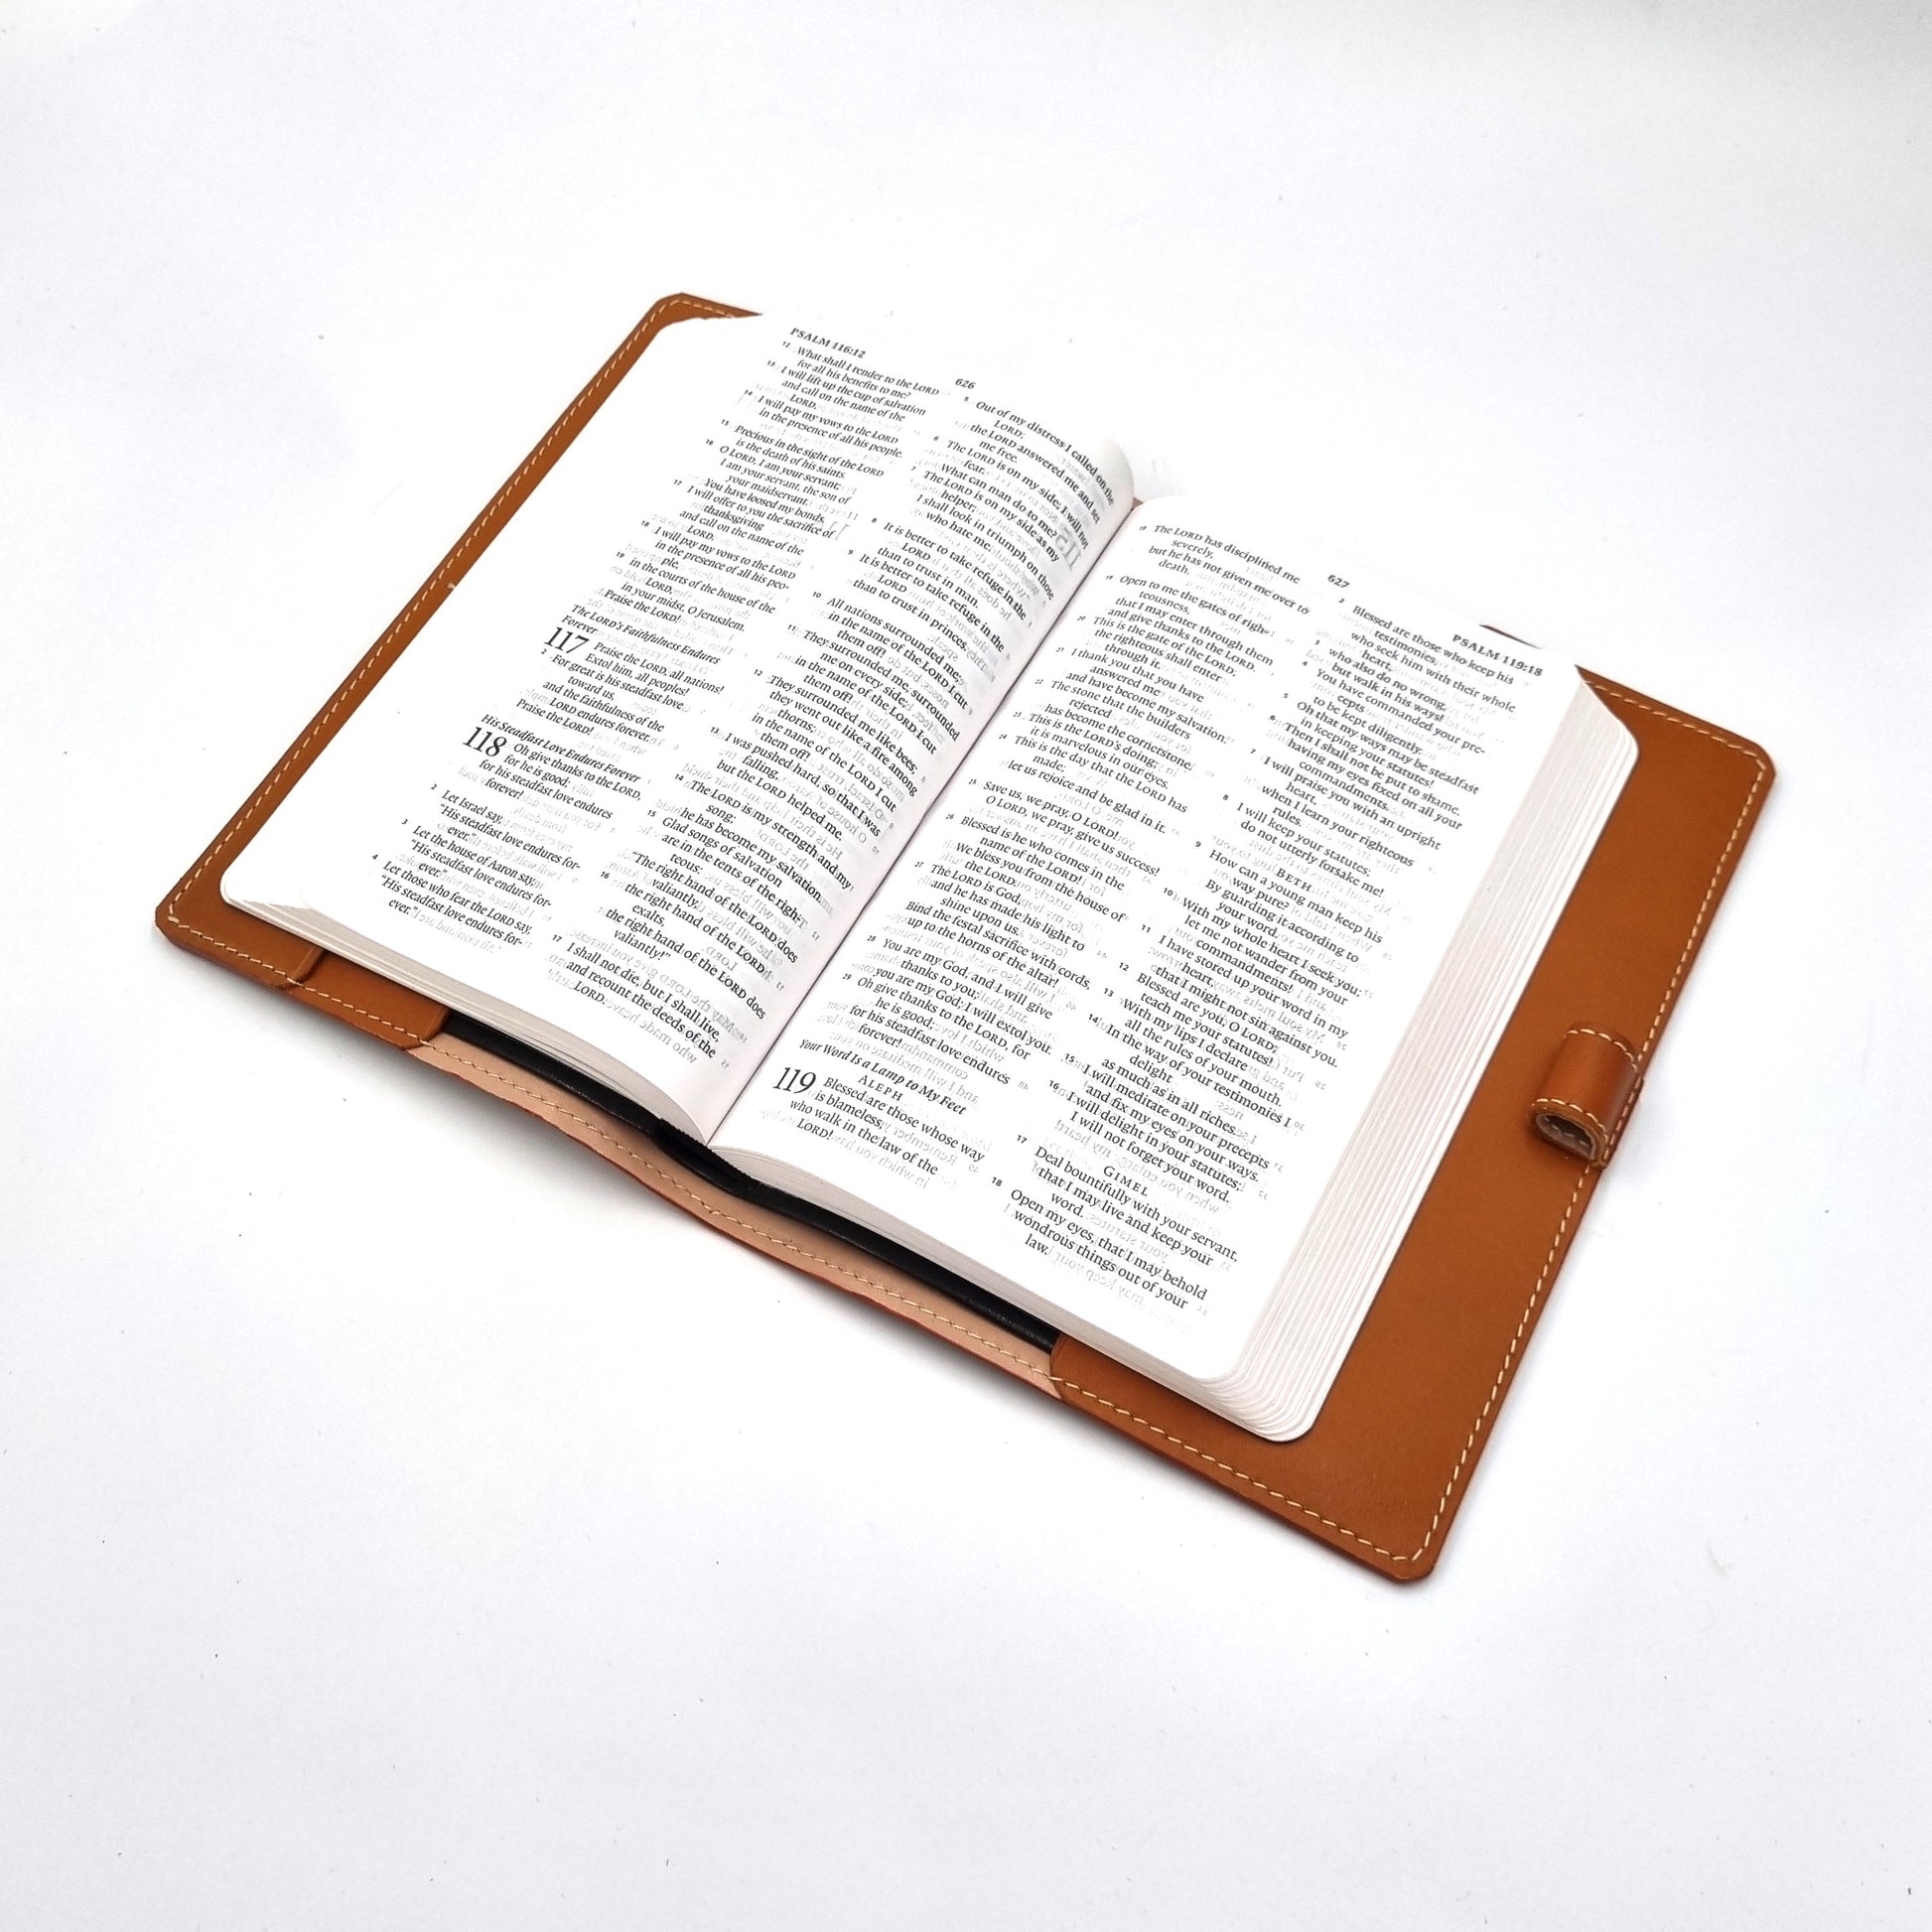 PSALM 116:12
626
12 What shall I render to the LORD
for all his benefits to me?
13 I will lift up the cup of salvation
and call on the name of the
LORD,
14 I will pay my vows to the LORD
in the presence of all his people.
15 Precious in the sight of the LORD
is the death of his saints.
16 O LORD, I am your servant;
I am your servant, the son of
your maidservant.
You have loosed my bonds.
17 I will offer to you the sacrifice of
thanksgiving
and call on the name of the
LORD.
18 I will pay my vows to the LORD
in the presence of all his peo-
ple,
19 in the courts of the house of the
LORD,
in your midst, O Jerusalem.
Praise the LORD!
The LORD's Faithfulness Endures
Forever
117 Praise the LORD, all nations!
Extol him, all peoples!
2 For great is his steadfast love
toward us,
and the faithfulness of the
LORD endures forever.
Praise the LORD!
His Steadfast Love Endures Forever
118 Oh give thanks to the LORD,
for he is good;
for his steadfast love endures
forever!
2 Let Israel say,
"His steadfast love endures for-
ever."
3 Let the house of Aaron say,
"His steadfast love endures for-
ever."
4 Let those who fear the LORD say,
"His steadfast love endures for-
ever."
5 Out of my distress I called on the
LORD;
the LORD answered me and set
me free.
6 The LORD is on my side; I will not
fear.
What can man do to me?
7 The LORD is on my side as my
helper;
I shall look in triumph on those
who hate me.
8 It is better to take refuge in the
LORD
than to trust in man.
9 It is better to take refuge in the
LORD
than to trust in princes.
10 All nations surrounded me;
in the name of the LORD I cut
them off!
11 They surrounded me, surrounded
me on every side;
in the name of the LORD I cut
them off!
12 They surrounded me like bees;
they went out like a fire among
thorns;
in the name of the LORD I cut
them off!
13 I was pushed hard, so that I was
falling,
but the LORD helped me.
14 The LORD is my strength and my
song;
he has become my salvation.
15 Glad songs of salvation
are in the tents of the right-
teous:
"The right hand of the LORD does
valiantly,
16 the right hand of the LORD
exalts,
the right hand of the LORD does
valiantly!"
17 I shall not die, but I shall live,
and recount the deeds of the
LORD.
627
PSALM 119:18
18 The LORD has disciplined me
severely,
but he has not given me over to
death.
19 Open to me the gates of righ-
teousness,
that I may enter through them
and give thanks to the LORD.
20 This is the gate of the LORD;
the righteous shall enter
through it.
21 I thank you that you have
answered me
and have become my salvation.
22 The stone that the builders
rejected
has become the cornerstone.
23 This is the LORD's doing;
it is marvelous in our eyes.
24 This is the day that the LORD has
made;
let us rejoice and be glad in it.
25 Save us, we pray, O LORD!
O LORD, we pray, give us success!
26 Blessed is he who comes in the
name of the LORD!
We bless you from the house of
the LORD.
27 The LORD is God,
and he has made his light to
shine upon us.
Bind the festal sacrifice with cords,
up to the horns of the altar!
28 You are my God, and I will give
thanks to you;
you are my God; I will extol you.
29 Oh give thanks to the LORD, for
he is good;
for his steadfast love endures
forever!
Your Word Is a Lamp to My Feet
ALEPH
119 Blessed are those whose way
is blameless,
who walk in the law of the
LORD!
2 Blessed are those who keep his
testimonies,
who seek him with their whole
heart,
3 who also do no wrong,
but walk in his ways!
4 You have commanded your pre-
cepts
to be kept diligently.
5 Oh that my ways may be steadfast
in keeping your statutes!
6 Then I shall not be put to shame,
having my eyes fixed on all your
commandments.
7 I will praise you with an upright
heart,
when I learn your righteous
rules.
8 I will keep your statutes;
do not utterly forsake me!
BETH
9 How can a young man keep his
way pure?
By guarding it according to
your word.
10 With my whole heart I seek you;
let me not wander from your
commandments!
11 I have stored up your word in my
heart,
that I might not sin against you.
12 Blessed are you, O LORD;
teach me your statutes!
13 With my lips I declare
all the rules of your mouth.
14 In the way of your testimonies I
delight
as much as in all riches.
15 I will meditate on your precepts
and fix my eyes on your ways.
16 I will delight in your statutes;
I will not forget your word.
GIMEL
17 Deal bountifully with your servant,
that I may live and keep your
word.
18 Open my eyes, that I may behold
wondrous things out of your
law.